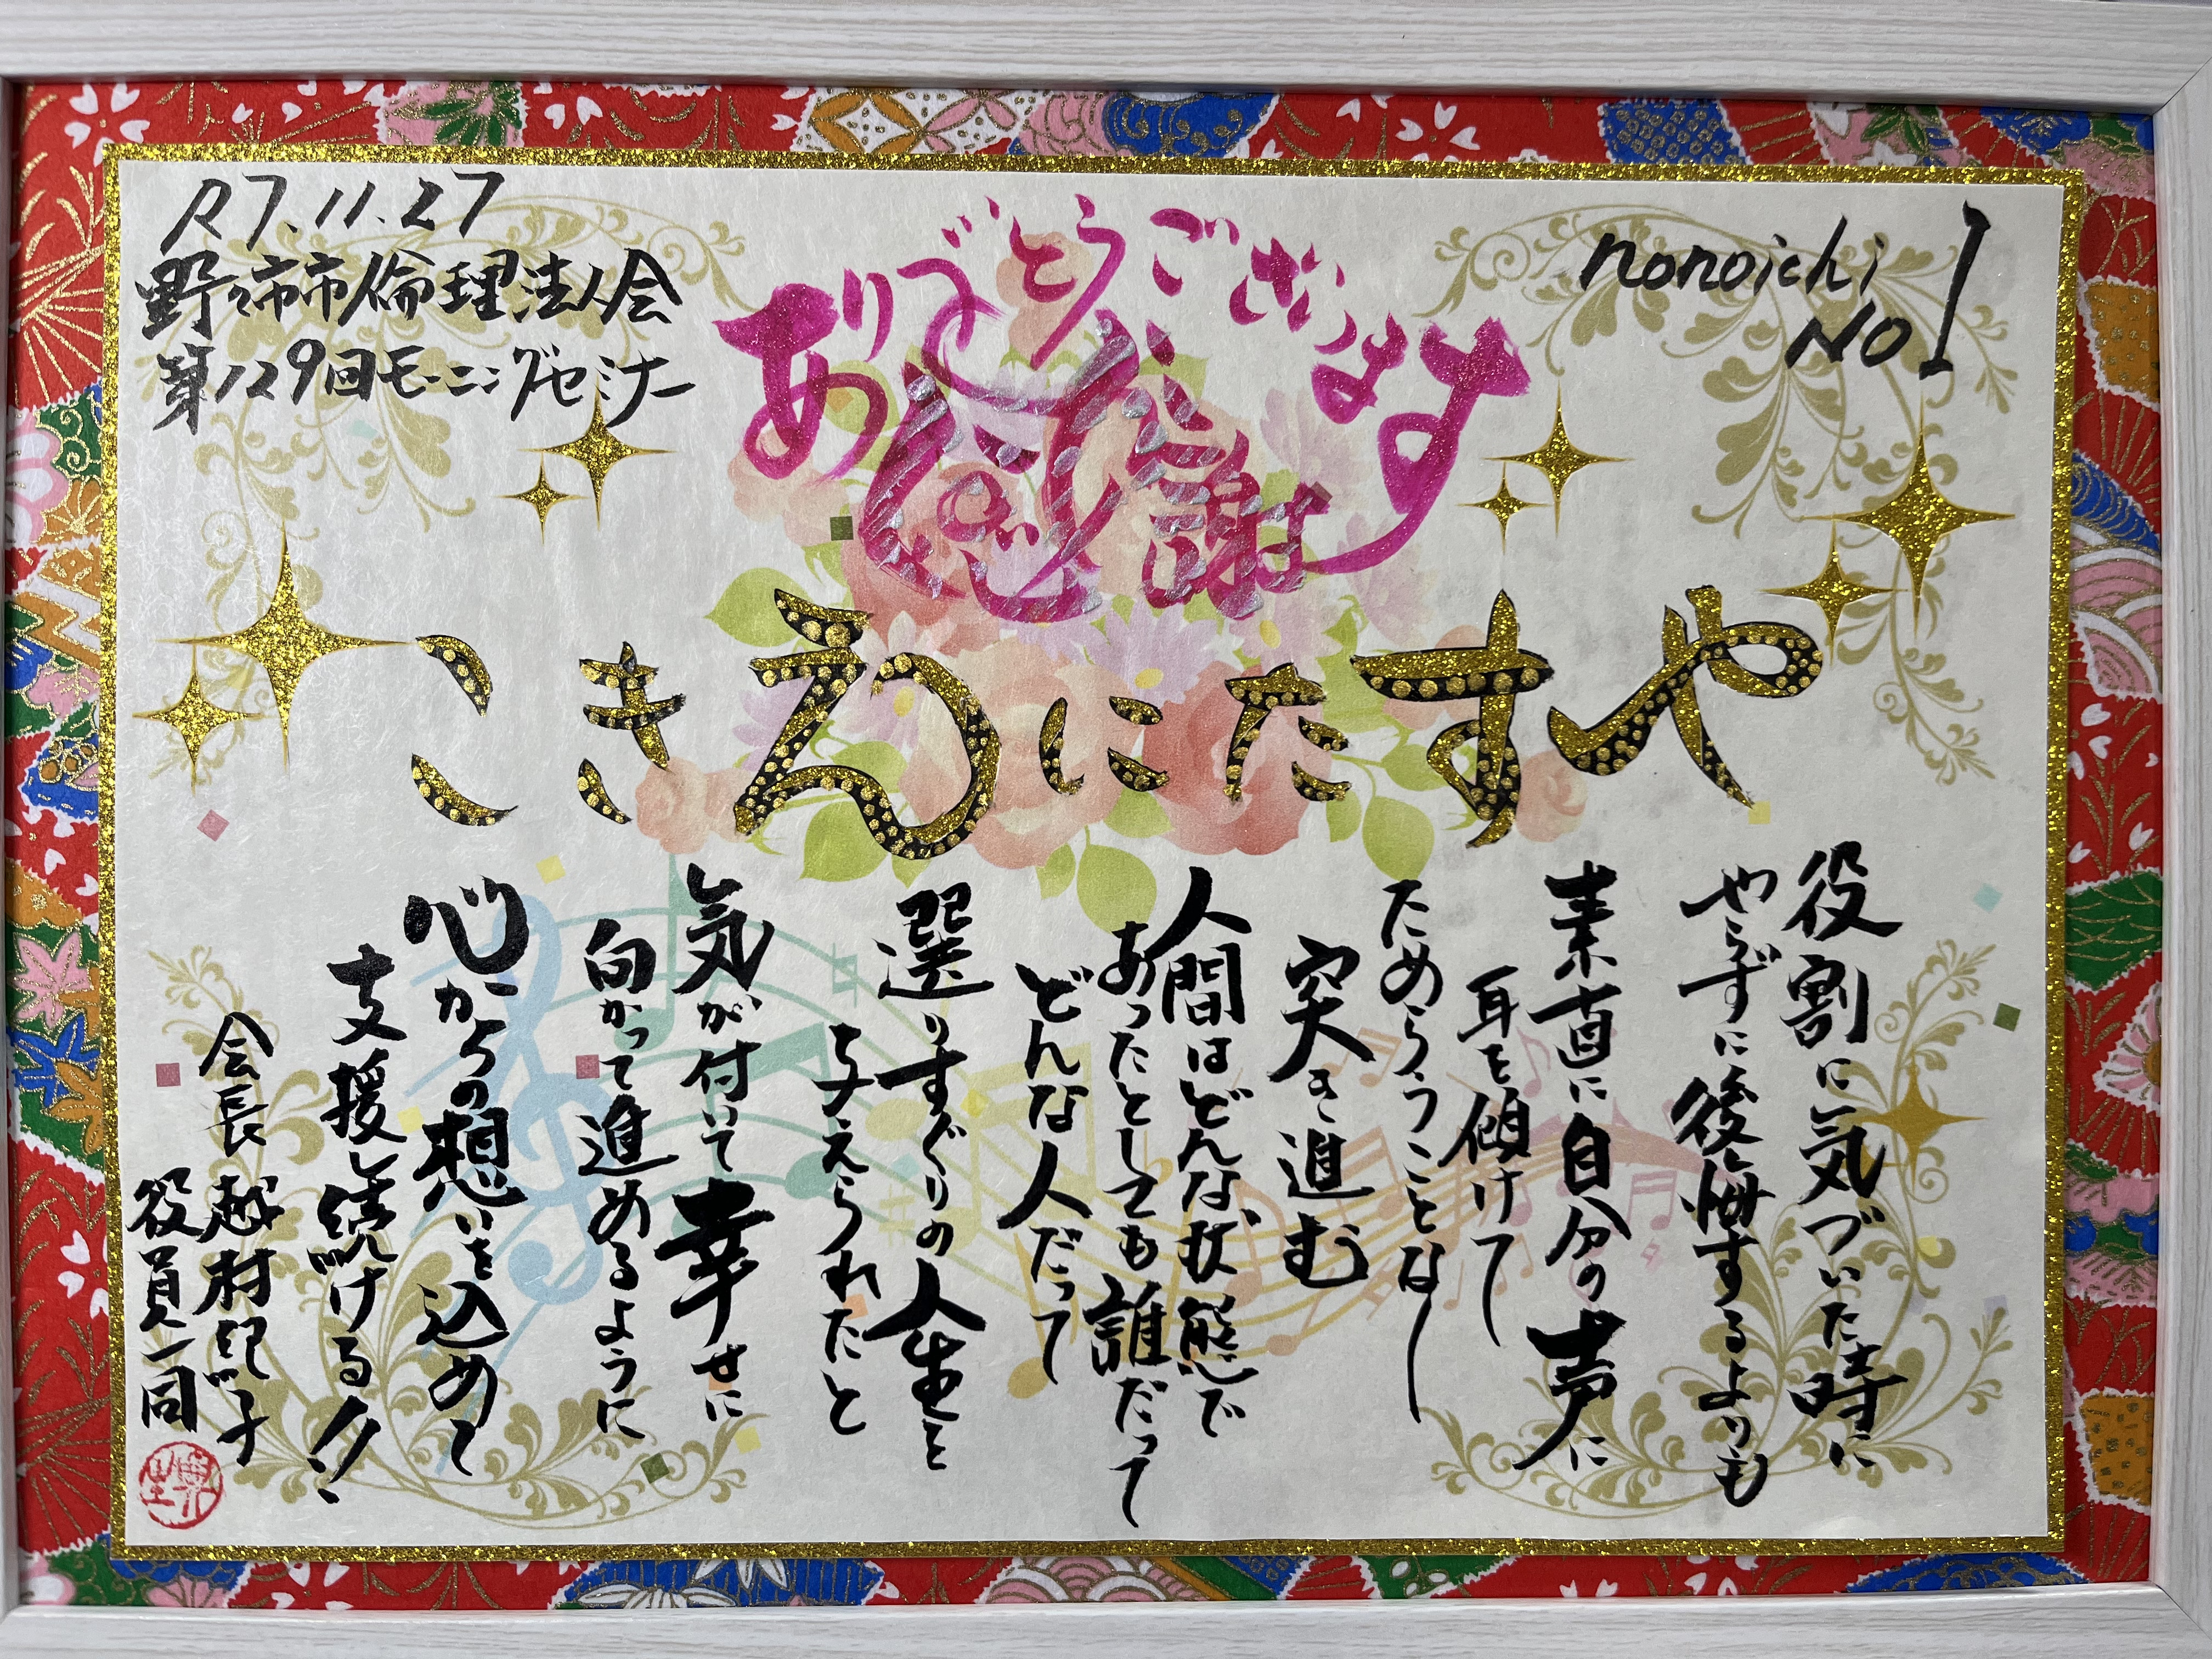 R7.11.27
野々市市倫理法人会
第129回モーニングセミナー
nonoichi
NO1
ありがとうございます
感謝
やすたにゑきこ
役割に気づいた時に
やらずに後悔するよりも
素直に自分の声に
耳を傾けて
ためらうことなし
突き進む
人間はどんな状態で
あったとしても誰だって
どんな人だって
選りすぐりの人生を
与えられたと
気が付いて幸せに
向かって進めるように
心からの想いを込めて
支援し続ける!!
会長 越村紀子
役員一同